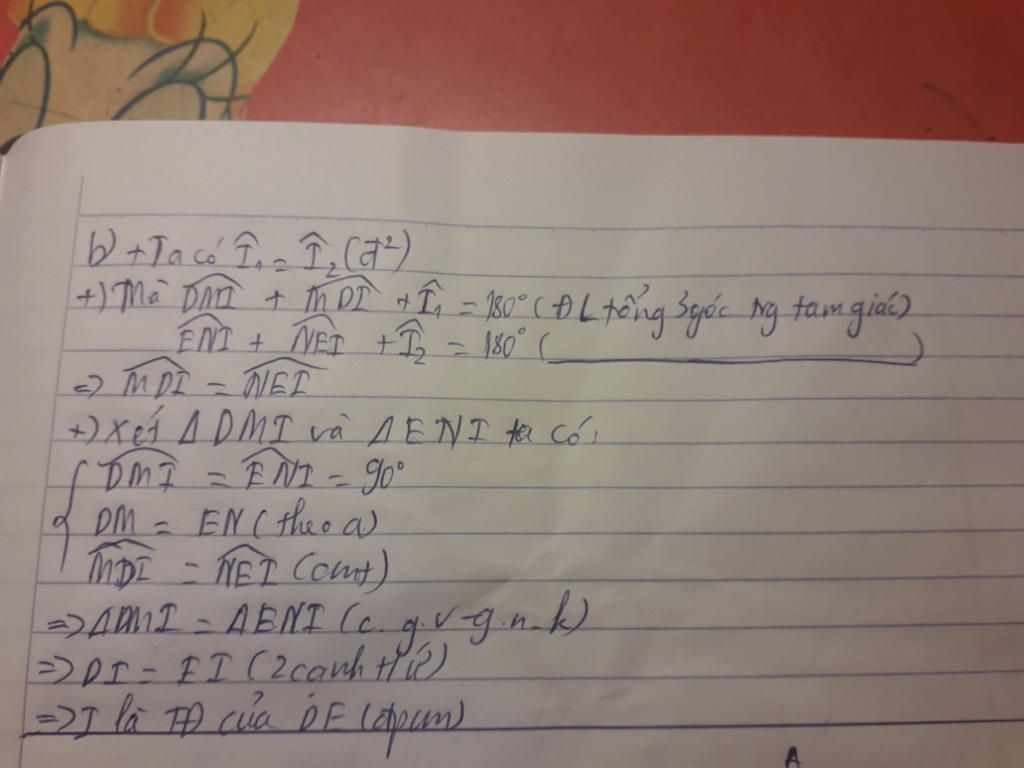 b) + Ta có Î₁ = Î₂ (đ²)
+) Mà \widehat{DMI} + \widehat{MDI} + Î₁ = 180° (ĐL tổng 3 góc ng tam giác)
\widehat{ENI} + \widehat{NEI} + Î₂ = 180° (
=> \widehat{MDI} = \widehat{NEI}
+) Xét Δ DMI và Δ ENI ta có:
\widehat{DMI} = \widehat{ENI} = 90°
DM = EN (theo a)
\widehat{MDI} = \widehat{NEI} (cmt)
=> ΔDMI = ΔENI (c.g.v-g.n.k)
=> DI = EI (2 cạnh tứ)
=> I là TĐ của DE (đpcm)
A